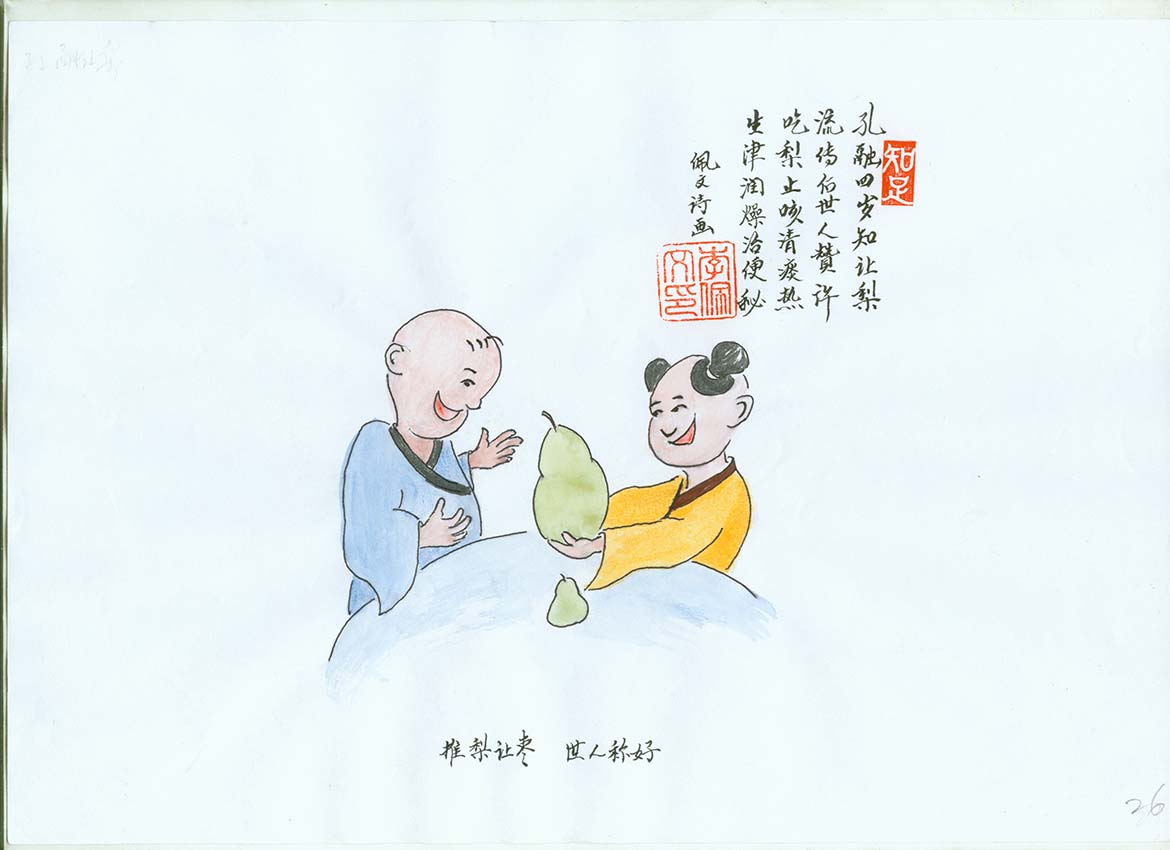 知足
孔融四岁知让梨
流传后世人赞许
吃梨止咳清痰热
生津润燥治便秘
佩文诗画
李佩文印
推梨让枣 世人称好
26